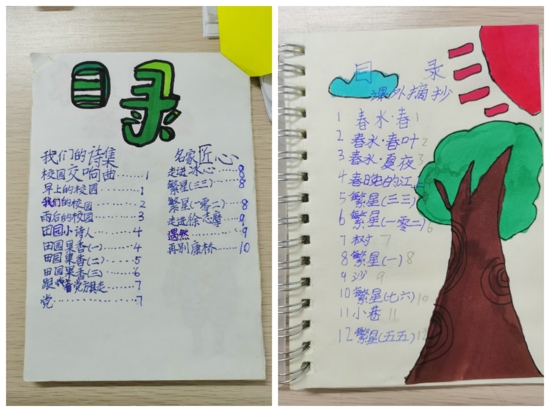 目录
我们的诗集
校园交响曲 1
早上的校园 1
我们的校园 2
雨后的校园 3
田园小诗人 4
田园果香(一) 4
田园果香(二) 5
田园果香(三) 6
跟着党旗走 7
党 7
名家匠心
走进冰心 8
繁星(三三) 8
繁星(一零二) 8
走进徐志摩 9
偶然 9
再别康桥 10
目录
课外摘抄
1 春水·春 1
2 春水·春叶 2
3 春水·夏夜 3
4 春晚的江上 4
5 繁星(三三) 5
6 繁星(一零二) 6
7 树 7
8 繁星(一) 8
9 沙 9
10 繁星(七六) 10
11 小巷 11
12 繁星(五五) 12